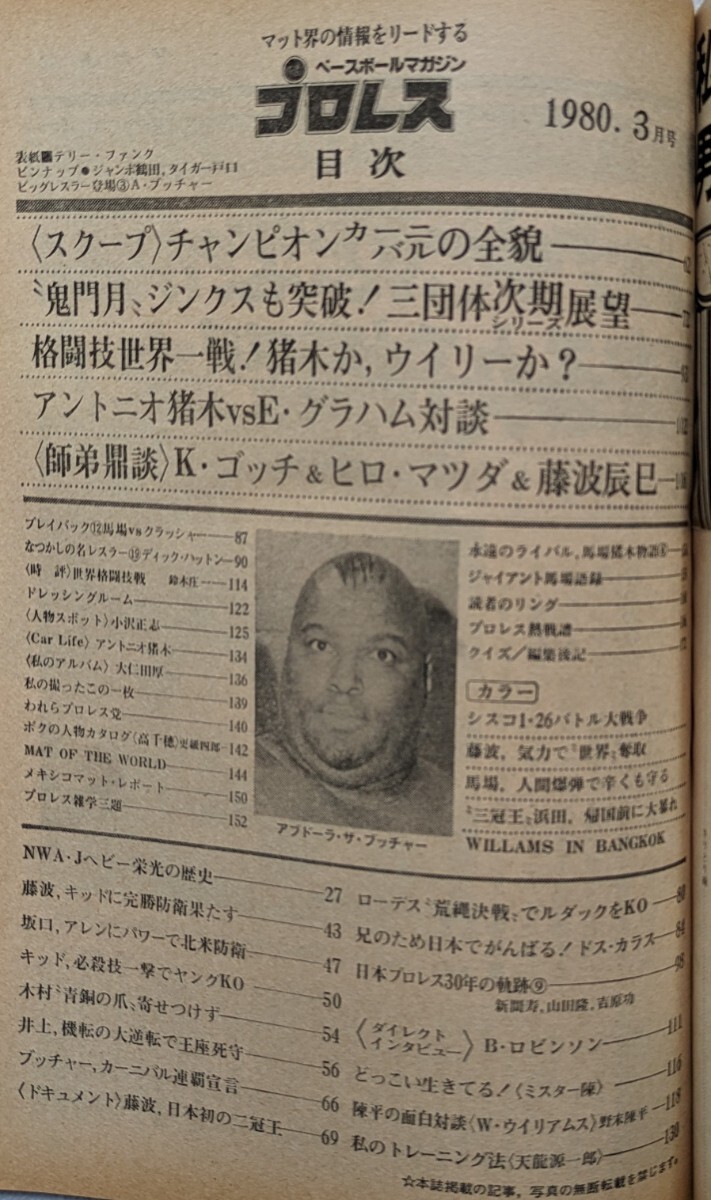 マット界の情報をリードする
ベースボールマガジン
プロレス
1980. 3月号
目次
表紙■テリー・ファンク
ピンナップ●ジャンボ鶴田, タイガー戸口
ビッグレスラーひ場③A・ブッチャー
〈スクープ〉チャンピオンカーバル元の全貌
〝鬼門月〟ジンクスも突破! 三団体次期シリーズ展望
格闘技世界一戦! 猪木か, ウイリーか?
アントニオ猪木vsE・グラハム対談
〈師弟鼎談〉K・ゴッチ&ヒロ・マツダ&藤波辰巳
プレイバック⑫馬場vsクラッシャー 87
なつかしの名レスラー⑲ディック・ハットン 90
〈時 評〉世界格闘技戦 鈴木庄 114
ドレッシングルーム 122
〈人物スポット〉小沢正志 125
〈Car Life〉アントニオ猪木 134
〈私のアルバム〉大仁田厚 136
私の撮ったこの一枚 139
われらプロレス党 140
ボクの人物カタログ〈高千穂〉更級四郎 142
MAT OF THE WORLD 144
メキシコマット・レポート 150
プロレス雑学三題 152
アブドーラ・ザ・ブッチャー
永遠のライバル, 馬場猪木物語
ジャイアント馬場語録
読者のリング
プロレス熱戦譜
クイズ/編集後記
カラー
シスコ1・26バトル大戦争
藤波, 気力で〝世界〟奪取
馬場, 人間爆弾で辛くも守る
〝三冠王〟浜田, 帰国前に大暴れ
WILLAMS IN BANGKOK
NWA・Jヘビー栄光の歴史 27
藤波, キッドに完勝防衛果たす 43
坂口, アレンにパワーで北米防衛 47
キッド, 必殺技一撃でヤングKO 50
木村〝青銅の爪〟寄せつけず 54
井上, 機転の大逆転で王座死守 56
ブッチャー, カーニバル連覇宣言 66
〈ドキュメント〉藤波, 日本初の二冠王 69
ローデス〝荒縄決戦〟でルダックをKO 80
兄のため日本でがんばる! ドス・カラス 84
日本プロレス30年の軌跡⑨ 98
新間寿, 山田隆, 吉原功
〈ダイレクトインタビュー〉B・ロビンソン 111
どっこい生きてる!〈ミスター陳〉 116
陳平の面白対談〈W・ウイリアムス〉野末陳平 118
私のトレーニング法〈天龍源一郎〉 130
☆本誌掲載の記事, 写真の無断転載を禁じます。